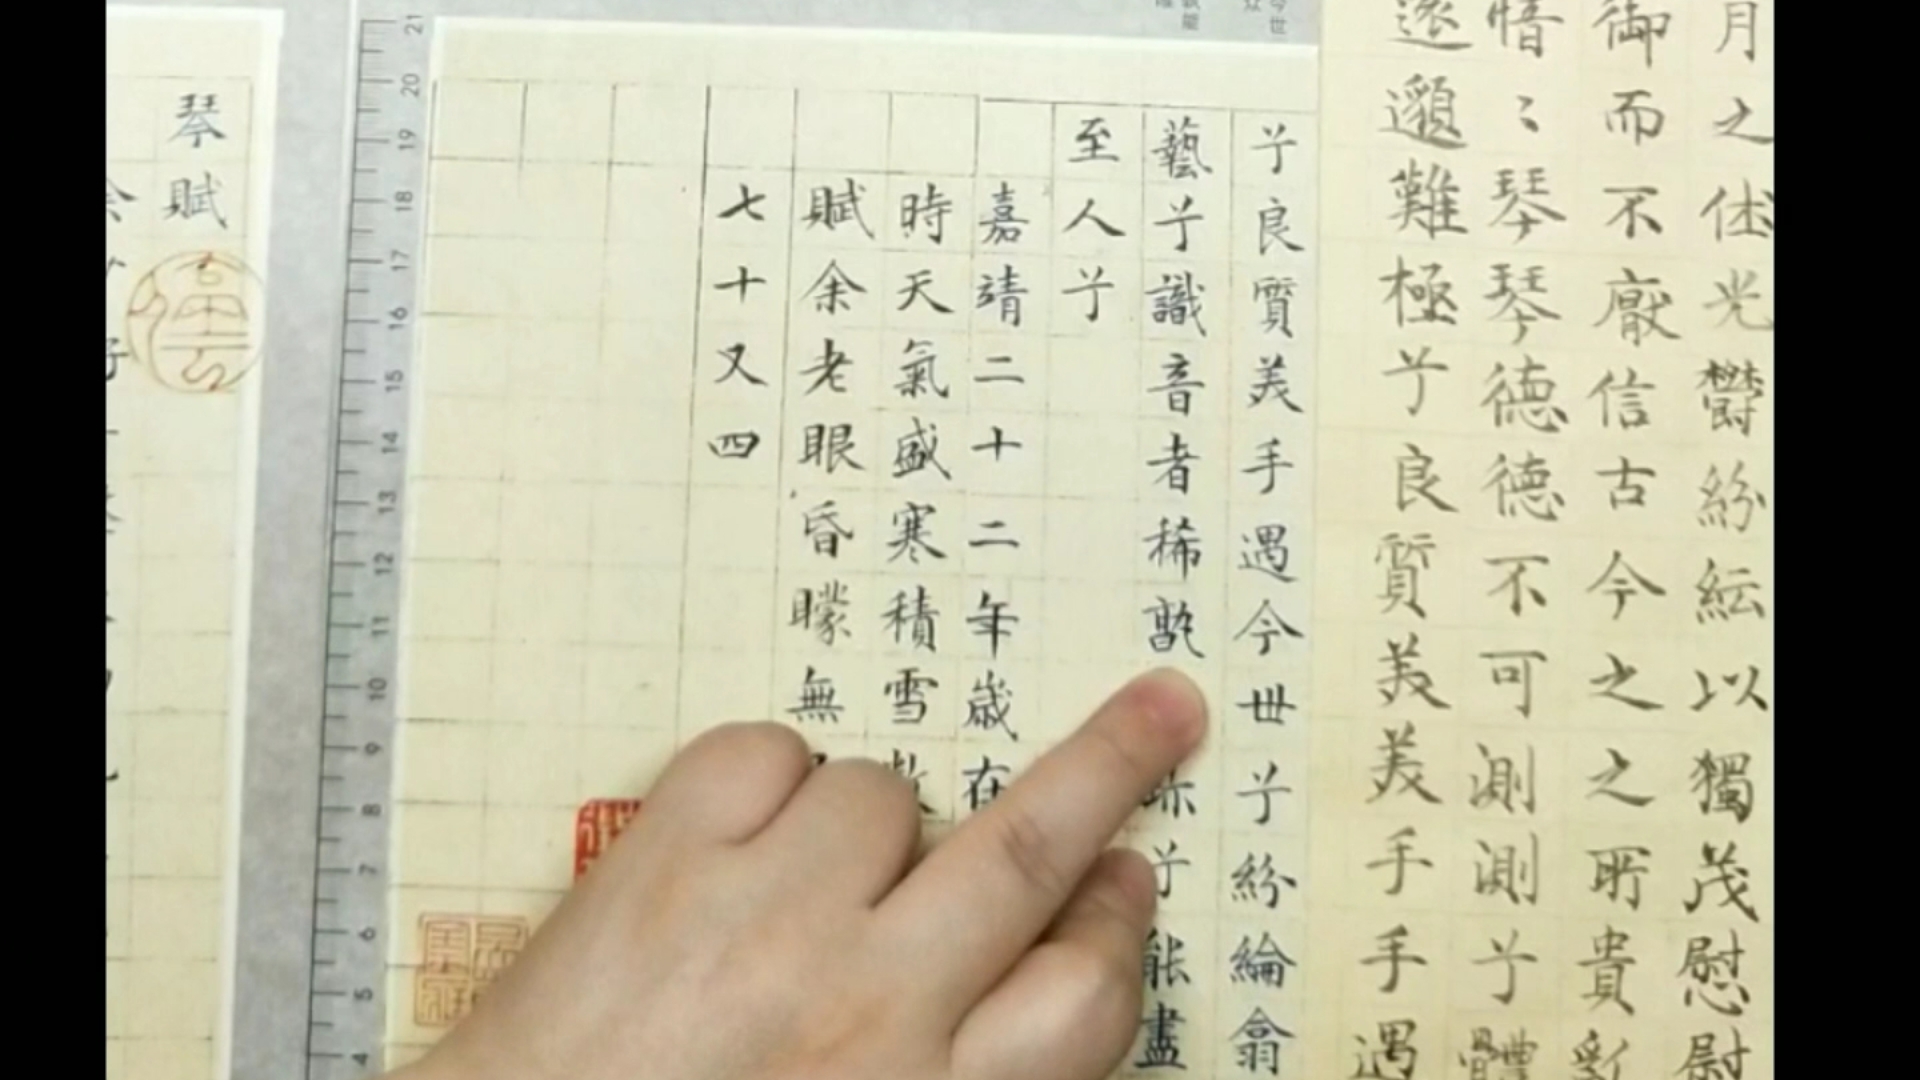 月之伅光鬱紛紜以獨茂慰慰
御而不厭信古今之之所貴
愔〻琴琴德德不可測測兮體
遼邈難極兮良質美美手手遇
兮良質美手遇今世兮紛綸翕
藝兮識音者稀孰兮能盡
至人兮
嘉靖二十二年歲在
時天氣盛寒積雪
賦余老眼昏矇無
七十又四
琴賦
21
20
19
18
17
16
15
14
13
12
11
10
9
8
7
6
5
4